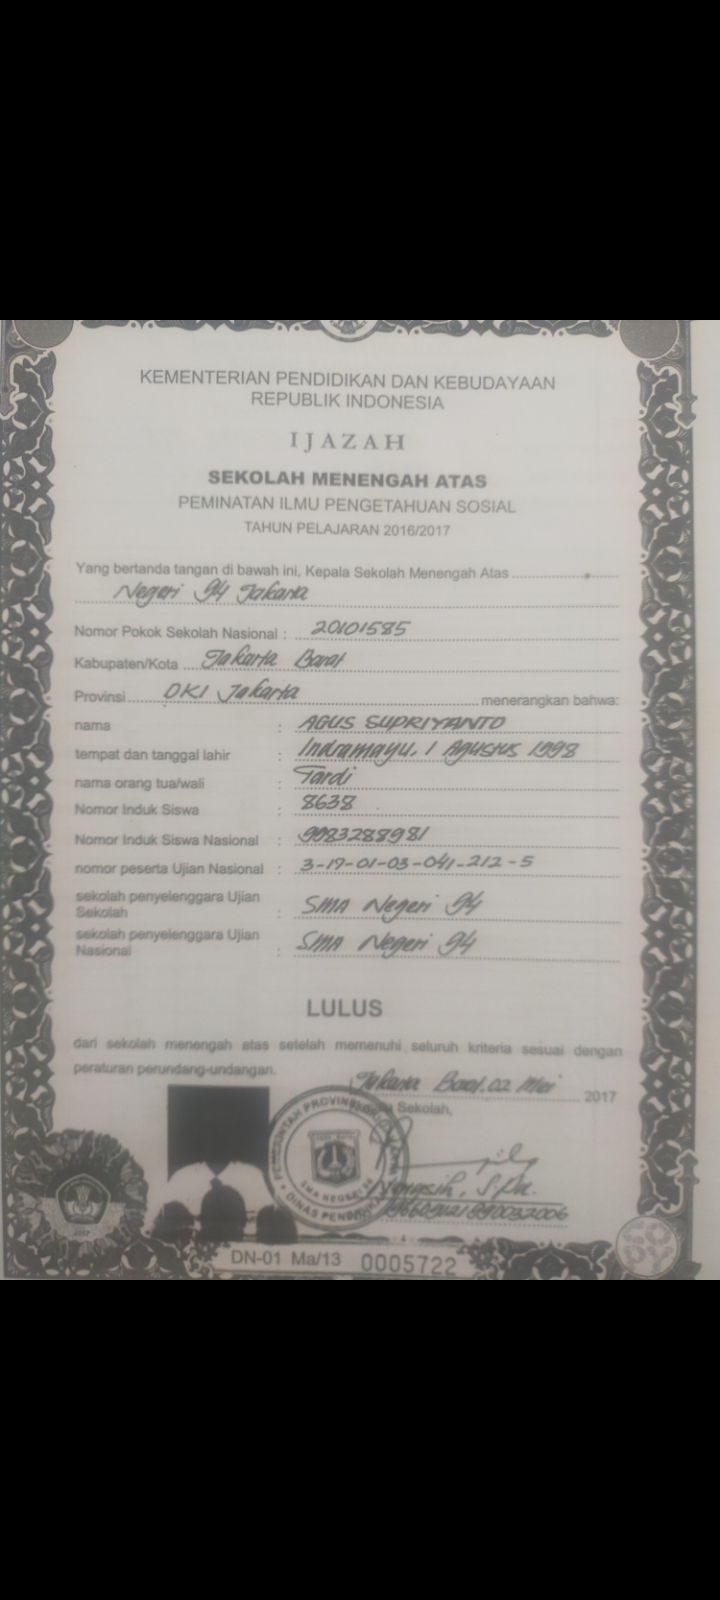 KEMENTERIAN PENDIDIKAN DAN KEBUDAYAAN
REPUBLIK INDONESIA
IJAZAH
SEKOLAH MENENGAH ATAS
PEMINATAN ILMU PENGETAHUAN SOSIAL
TAHUN PELAJARAN 2016/2017
Yang bertanda tangan di bawah ini, Kepala Sekolah Menengah Atas
Negeri 94 Jakarta
Nomor Pokok Sekolah Nasional : 20101585
Kabupaten/Kota Jakarta Barat
Provinsi DKI Jakarta menerangkan bahwa:
nama : AGUS SUPRIYANTO
tempat dan tanggal lahir : Indramayu, 1 Agustus 1998
nama orang tua/wali : Tardi
Nomor Induk Siswa : 8638
Nomor Induk Siswa Nasional : 9983288981
nomor peserta Ujian Nasional : 3-17-01-03-041-212-5
sekolah penyelenggara Ujian
Sekolah : SMA Negeri 94
sekolah penyelenggara Ujian
Nasional : SMA Negeri 94
LULUS
dari sekolah menengah atas setelah memenuhi seluruh kriteria sesuai dengan
peraturan perundang-undangan.
Jakarta Barat, 02 Mei 2017
Sekolah,
PEMERINTAH PROVINSI
SMA NEGERI
DINAS PENDIDIKAN
S.Pd.
2017
COPY
DN-01 Ma/13 0005722